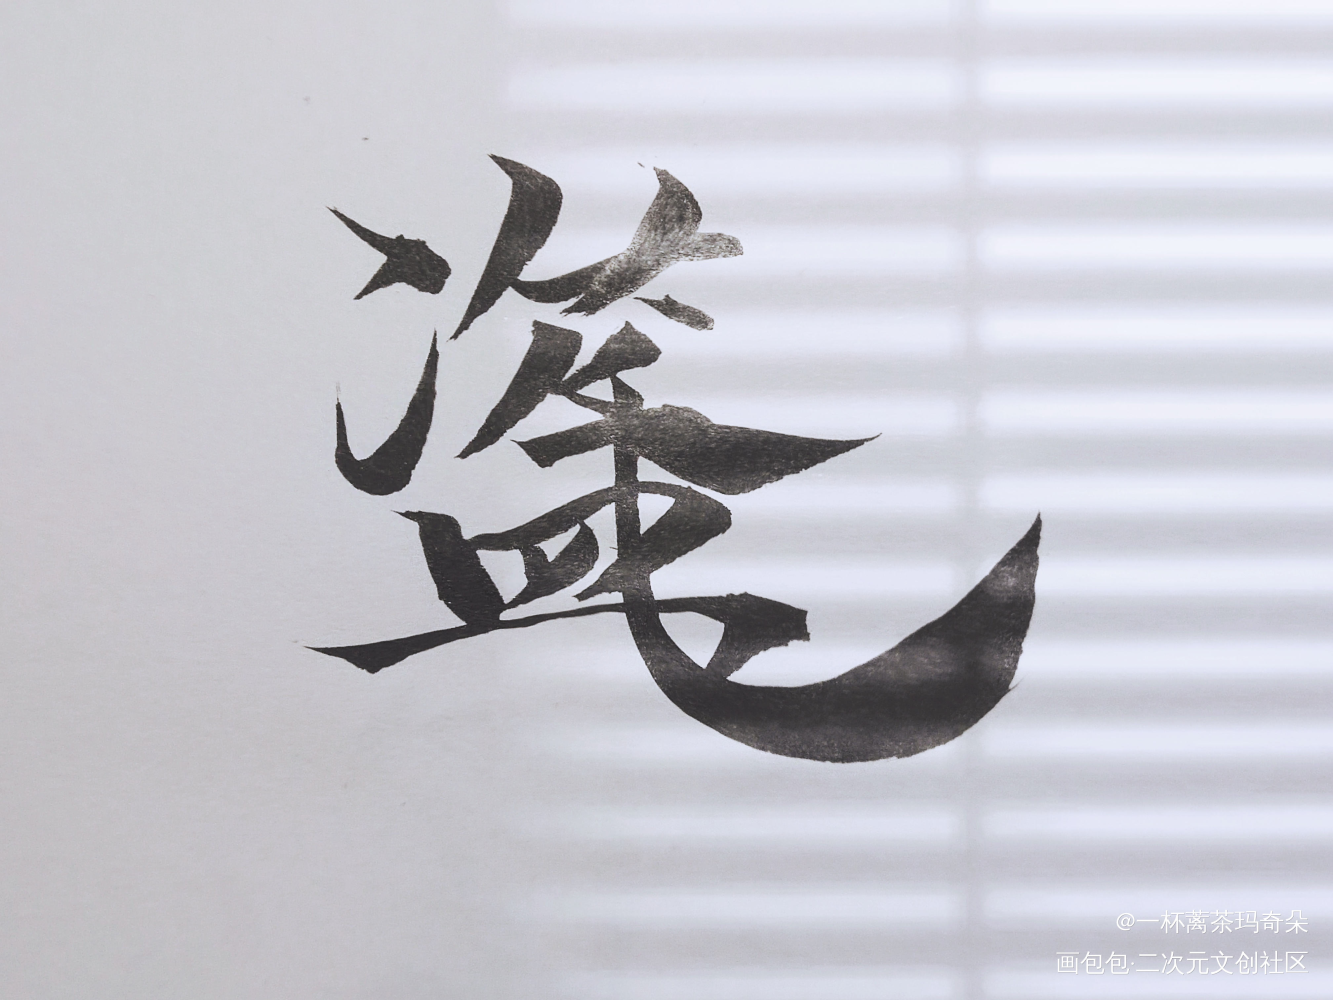 盗笔
@一杯蓠茶玛奇朵
画包包·二次元文创社区